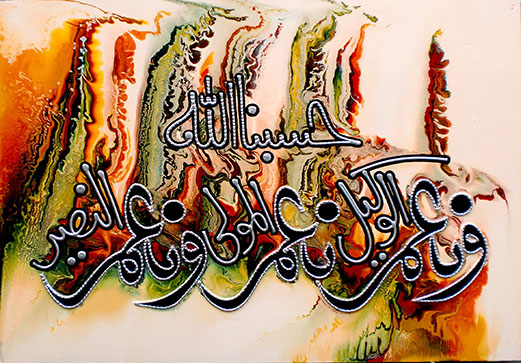 حسبنا الله
ونعم الوكيل نعم المولى ونعم النصير